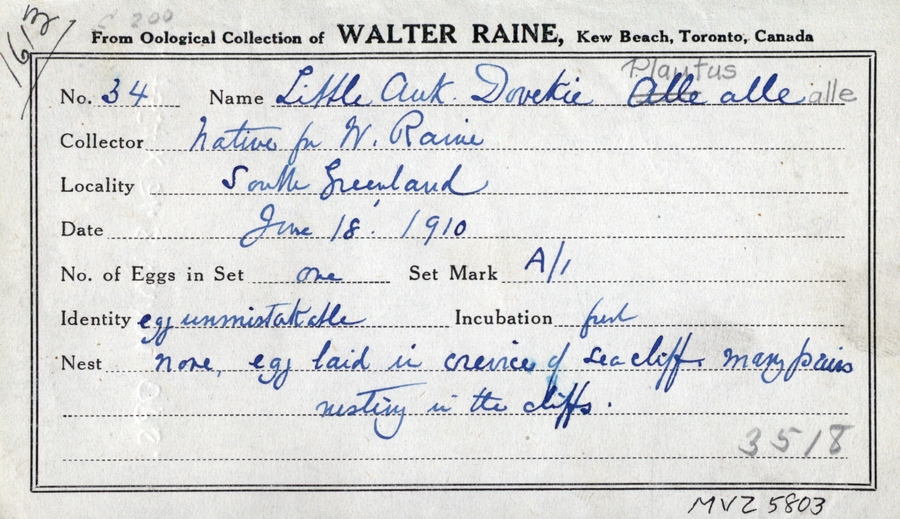 6/3/
5 200
From Oological Collection of WALTER RAINE, Kew Beach, Toronto, Canada
Plautus
No. 34 Name Little Auk. Dovekie Alle alle alle
Collector Native for W. Raine
Locality South Greenland
Date June 18. 1910
No. of Eggs in Set one Set Mark A/1
Identity egg unmistakable Incubation fresh
Nest none, egg laid in crevice of sea cliff. many pairs
nesting in the cliffs.
3518
MVZ 5803